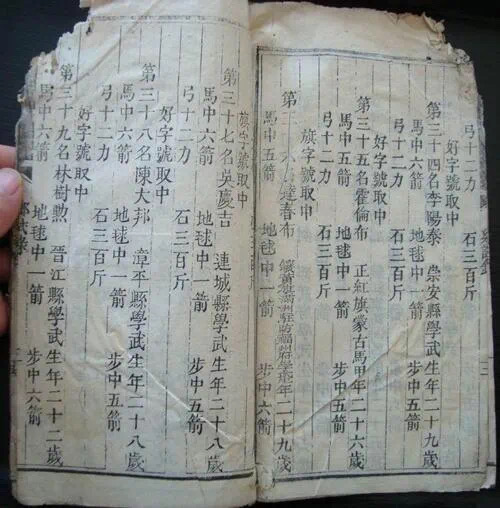 弓十二力 石三百斤
好字號取中
第三十四名李陽泰 崇安縣學武生年二十九歲
馬中六箭 地毬中一箭 步中五箭
弓十二力 石三百斤
好字號取中
第三十五名霍倫布 正紅旗蒙古馬甲年二十六歲
馬中五箭 地毬中一箭 步中五箭
弓十二力 石三百斤
旗字號取中
第三 六 達春布 鑲黃旗滿洲駐防福州府學武生年二十九歲
馬中五箭 地毬中一箭 步中六箭
旗字號取中
第三十七名吳慶吉 連城縣學武生年二十八歲
馬中六箭 地毬中一箭 步中五箭
弓十二力 石三百斤
好字號取中
第三十八名陳大邦 漳平縣學武生年二十八歲
馬中六箭 地毬中一箭 步中 箭
弓十二力 石三百斤
好字號取中
第三十九名林樹勲 晉江縣學武生年二十二歲
馬中六箭 地毬中一箭 步中六箭